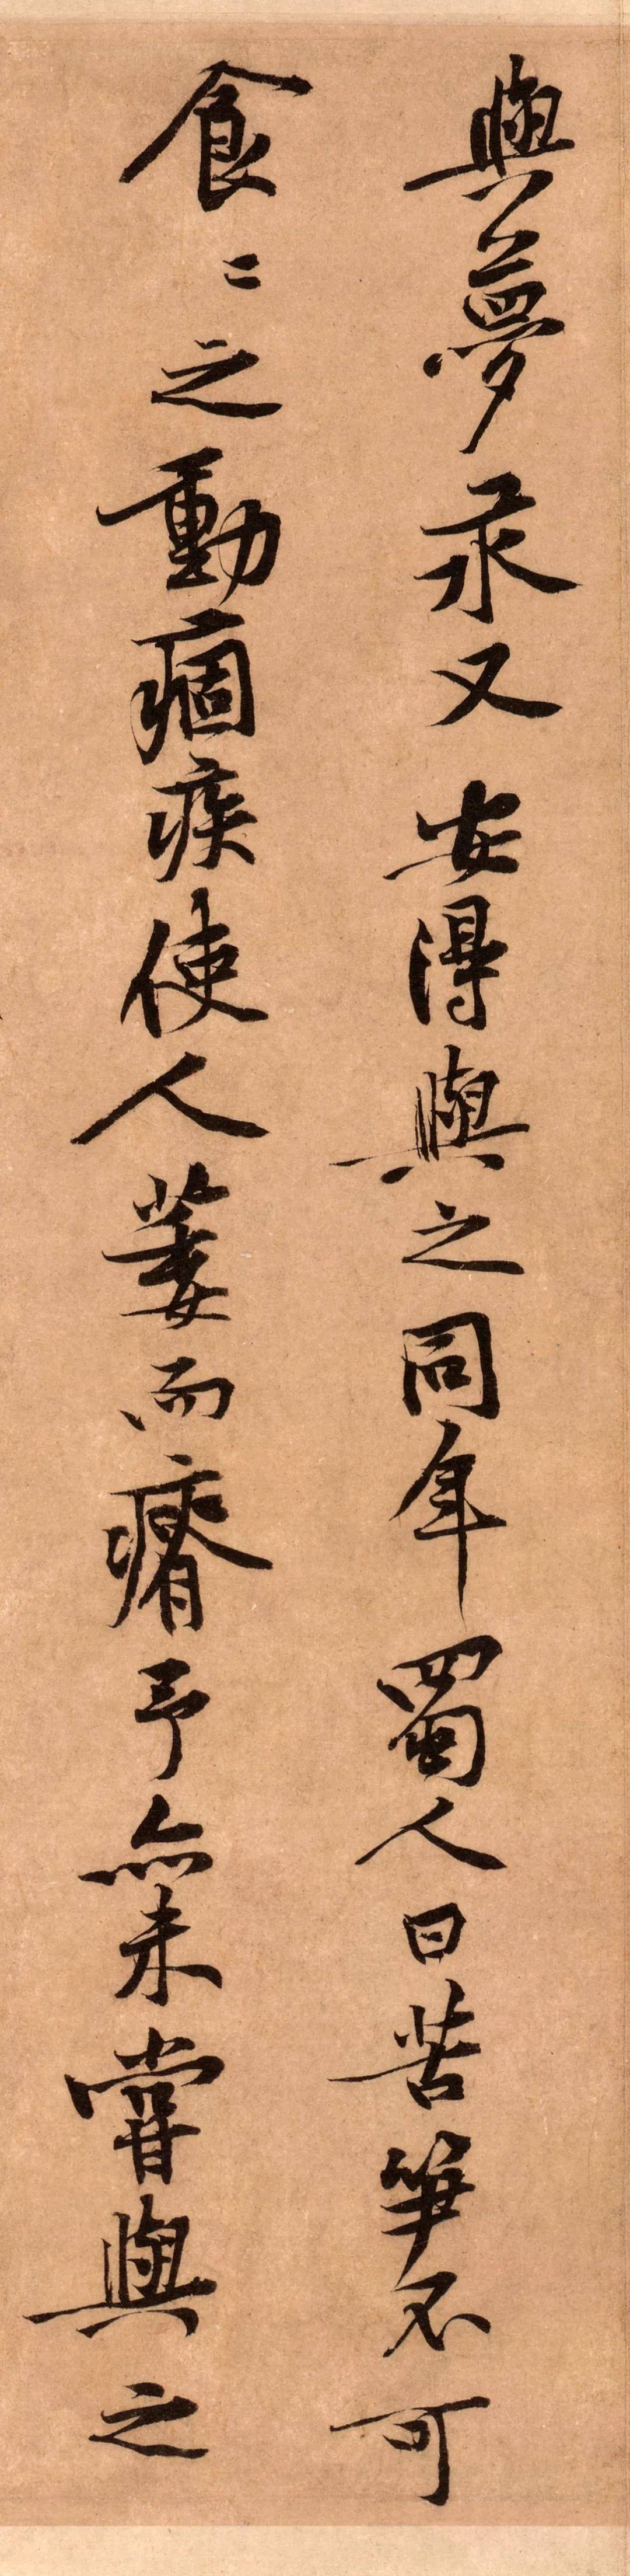 與夢永又安得與之同年蜀人曰苦筍不可
食〻之動痼疾使人萎而瘠予亦未嘗與之